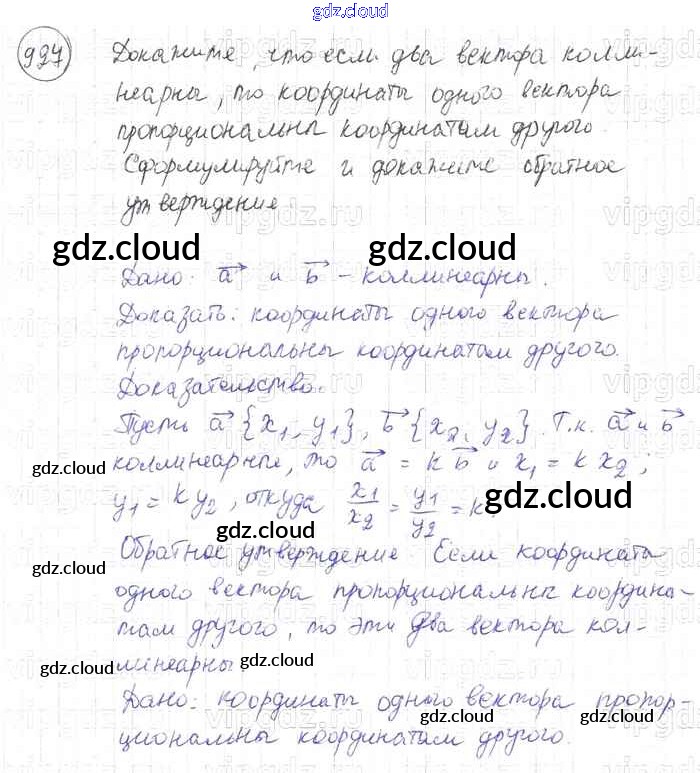 gdz.cloud
927 Докажите, что если два вектора колли-
неарны, то координаты одного вектора
пропорциональны координатам другого.
Сформулируйте и докажите обратное
утверждение
gdz.cloud gdz.cloud
Дано: a⃗ и b⃗ - коллинеарны.
Доказать: координаты одного вектора
пропорциональны координатам другого.
Доказательство.
Пусть a⃗ {x₁, y₁}, b⃗ {x₂, y₂}. Т.к. a⃗ и b⃗
коллинеарные, то a⃗ = k b⃗ и x₁ = k x₂;
gdz.cloud
y₁ = k y₂, откуда x₁/x₂ = y₁/y₂ = k.
gdz.cloud
gdz.cloud
Обратное утверждение Если координаты
gdz.cloud
одного вектора пропорциональны координа-
там другого, то эти два вектора кол-
линеарны.
gdz.cloud gdz.cloud
Дано: координаты одного вектора пропор-
gdz.cloud gdz.cloud
циональны координатам другого.
gdz.cloud